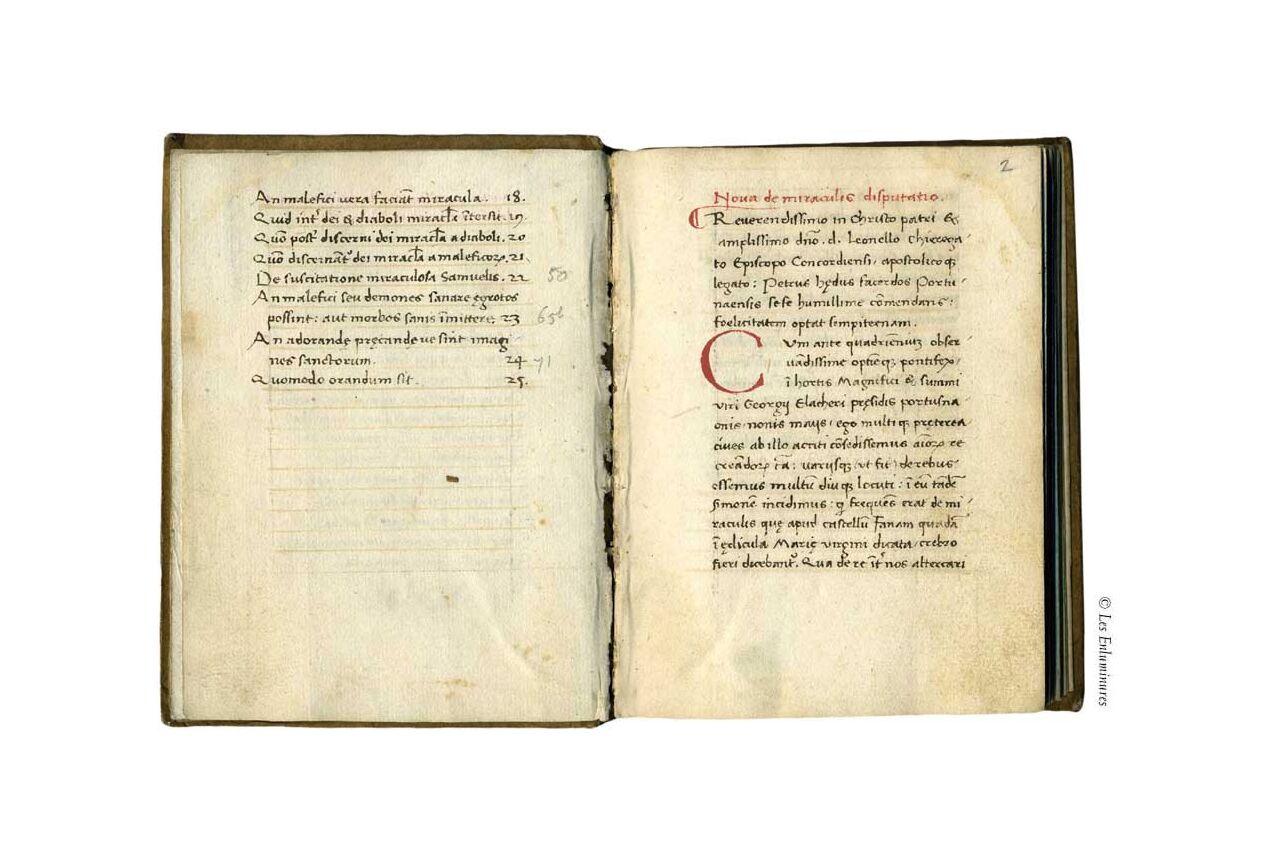 An malefici vera faciāt miracula. 18.
Quid int' dei & diaboli miracl̄a ītersit. 19.
Quō post' discerni dei miracl̄a a diaboli. 20
Quō discernāt' dei miracl̄a a maleficoꝝ. 21.
De suscitatione miraculosa Samuelis. 22 50
An malefici seu demones sanare ęgrotos
possint: aut morbos sanis īmittere 23 65b
An adorande pręcandę ve sint imagi
nes sanctorum. 24 71
Quomodo orandum sit. 25.
2
Nova de miraculis disputatio.
Reverendissimo in Christo patri &
amplissimo dno. d. Leonello Chieroga
to Episcopo Concordiensi, apostolicoqꝫ
legato: Petrus hędus sacerdos Portu
naensis sese humillime cōmendans:
foelicitatem optat sempiternam.
Cum ante quadrieniuꝫ obser
vadissime optiēqꝫ pontifex,
ī hortis Magnifici & summi
viri Georgij Elacheri pręsidis portusna
onis, nonis maijs, ego multi qꝫ pręterea
cives ab illo acciti cōsedissemus aīoꝝ re
creādoꝝ cā: varijsqꝫ (ut fit) de rebus
essemus multū diu qꝫ locuti: ī eū tādē
simonē incidimus: q frequēs erat de mi
raculis quę apud castellū Fanam quadā
ī ędicula Marię virgini dicata crebro
fieri dicebant'. Qua de re īt' nos altercari
© Les Enluminures